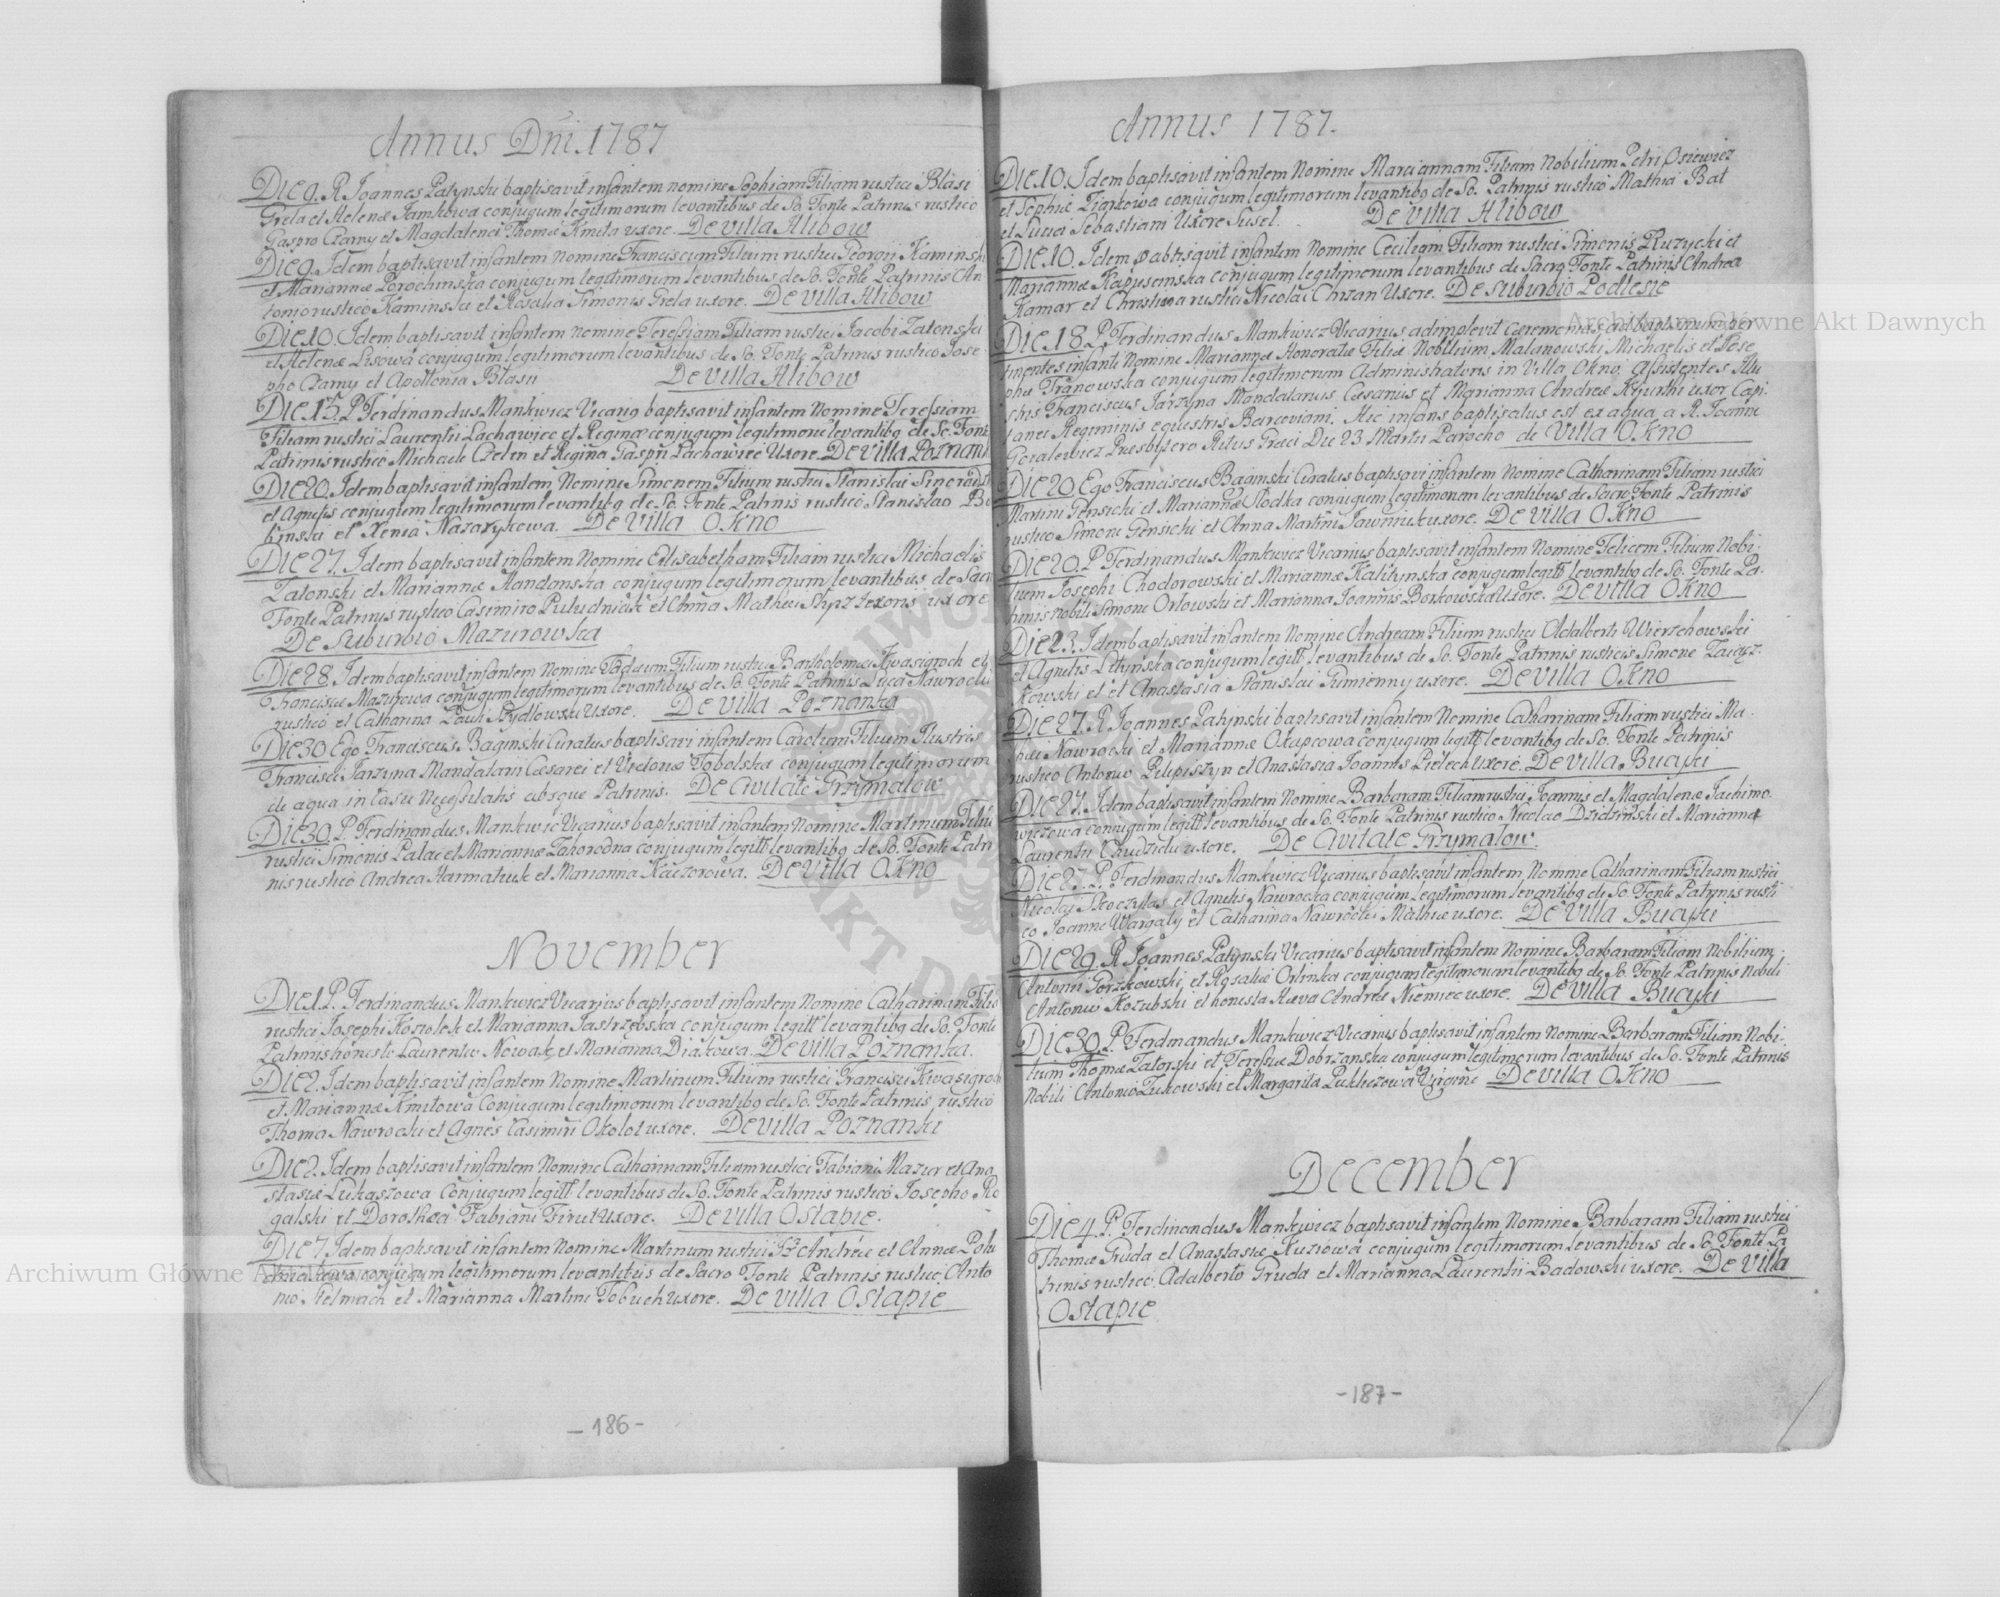 Annus Dni. 1787
Die 9. R. Joannes Patynski baptisavit infantem nomine Sophiam Filiam rustici Blasi
Grela et Helenæ Jamkowa conjugum legitimorum levantibus de So. Fonte Patrinis rustico
Gaspro Czarny et Magdalena Thomæ Kmita uxore. De Villa Hlibow
Die 9. Idem baptisavit infantem Nomine Franciscum Filium rustici Georgii Kaminski
et Mariannæ Porochinska conjugum legitimorum levantibus de So. Fonte Patrinis An
tonio rustico Kaminski et Rosalia Simonis Grela uxore. De Villa Hlibow
Die 10. Idem baptisavit infantem Nomine Teressiam Filiam rustici Jacobi Zatonski
et Helenæ Lisowa conjugum legitimorum levantibus de So. Fonte Patrinis rustico Jose
pho Czarny et Apollonia Blasii De Villa Hlibow
Die 15. P. Ferdinandus Mankwicz Vicariq baptisavit infantem Nomine Teressiam
Filiam rustici Laurentii Lachawiec et Reginæ conjugum legitimoru levantibq de So. Fonte
Patrinis rustico Michaele Czelen et Regina Gaspri Lachawiec Uxore. De Villa Poznank
Die 20. Idem baptisavit infantem Nomine Simonem Filium rustici Stanislai
et Agnetis conjugum legitimorum levantibq de So. Fonte Patrinis rustico Stanislao Bo
binski et Xenia Nazarykowa. De Villa Okno
Die 27. Idem baptisavit infantem Nomine Elisabetham Filiam rustici Michaelis
Zatonski et Mariannæ Handanska conjugum legitimorum levantibus de Sacr
Fonte Patrinis rustico Casimiro Puludniak et Anna Mathei uxore
De Suburbio Mazurowska
Die 28. Idem baptisavit infantem Nomine Filium rustici Bartholomei Kwasigroch et
Franciscæ Mazurowa conjugum legitimorum levantibus de So. Fonte Patrinis Luca Nawrocki
rustico et Catharina Pauli Szydlowski Uxore. De Villa Poznanka
Die 30 Ego Franciscus Baginski Curatus baptisavi infantem Carolum Filium Illustris
Francisci Jarzyna Mandatarii Cæsarei et Victoriæ Tobolska conjugum legitimorum
de aqua in Casu Necessitatis absque Patrinis. De Civitate Grzymalow
Die 30. P. Ferdinandus Mankwic Vicarius baptisavit infantem Nomine Martinum Filiu
rustici Simonis Palac et Mariannæ Zahorodna conjugum legitt levantibq de So. Fonte Patri
nis rustico Andrea Harmatiuk et Marianna Kaczorowa. De Villa Okno
November
Die 1. P. Ferdinandus Mankwicz Vicarjus baptisavit infantem Nomine Catharinam Filia
rustici Josephi Koziolek et Marianna Jastrzebska conjugum legitt levantibq de So. Fonte
Patrinis honesto Laurentio Nowak et Marianna Diakowa. De Villa Poznanka.
Die 2. Idem baptisavit infantem Nomine Martinum Filium rustici Francisci Kwasigroch
et Mariannæ Kmitowa Conjugum legitimorum levantibq de So. Fonte Patrinis rustico
Thoma Nawrocki et Agnes Casimiri Okolot uxore. De Villa Poznanki
Die 2. Idem baptisavit infantem Nomine Catharinam Filiam rustici Fabiani Mazur et Ana
stasiæ Lukaszowa Conjugum legitt levantibus de So. Fonte Patrinis rustico Josepho Ro
galski et Dorothea Fabiani Firut Uxore. De Villa Ostapie.
Die 7. Idem baptisavit infantem Nomine Martinum rustici Andreæ et Annæ
conjugum legitimorum levantibus de Sacro Fonte Patrinis rustici Anto
nio Helmach et Marianna Martini Tobuch Uxore. De Villa Ostapie
-186-
Annus 1787.
Die 10. Idem baptisavit infantem Nomine Mariannam Filiam Nobilium Petri Osiewicz
et Sophiæ Ziarkowa conjugum legitimorum levantibq de So. Patrinis rustico Mathia Bat
et Lucia Sebastiani Uxore Susel. De Villa Hlibow
Die 10. Idem babtisavit infantem Nomine Ceciliam Filiam rustici Simonis Ruzycki et
Mariannæ Kapuscinska conjugum legitimorum levantibus de Sacro Fonte Patrinis Andrea
Kamar et Christina rustici Nicolai Chrzan Uxore. De Suburbio Podlesie
Die 18. P. Ferdinandus Mankiwicz Vicarius adimplevit Cæremonias ad baptismum per
tinentes infanti Nomine Mariannæ Honoratæ Filiæ Nobilium Malanowski Michaelis et Jose
phæ Tranowska conjugum legitimorum Administratoris in Villa Okno. Assistentes Illu
stris Franciscus Jarzyna Mandatarius Cæsarius et Marianna Andreæ uxor Capi
tanei Regiminis equestris Barcoviani. Hic infans baptisatus est ex aqua a R. Joanne
Gozalewicz Presbytero Ritus Græci Die 23 Martii Parocho de Villa Okno
Die 20 Ego Franciscus Baginski Curatus baptisavi infantem Nomine Catharinam Filiam rustici
Martini Gensicki et Mariannæ Slodka conjugum legitimorum levantibus de Sacro Fonte Patrinis
rustico Simone Gensicki et Anna Martini Jawniuk uxore. De Villa Okno
Die 20. P. Ferdinandus Mankwicz Vicarius baptisavit infantem Nomine Felicem Filium Nobi
lium Josephi Chodorowski et Mariannæ Kalitynska conjugum legitt levantibq de So. Fonte Pa
trinis Nobili Simone Orlowski et Marianna Joannis Borkowska Uxore. De Villa Okno
Die 23. Idem baptisavit infantem Nomine Andream Filium rustici Adalberti Wierzchowski
et Agnetis Letynska conjugum legitt levantibus de So. Fonte Patrinis rusticis Simone Zaicz
kowski et et Anastasia Stanislai Gumienny uxore. De Villa Okno
Die 27. R. Joannes Patynski baptisavit infantem Nomine Catharinam Filiam rustici Ma
thei Nawrocki et Mariannæ Okapcowa conjugum legitt levantibq de So. Fonte Patrinis
rustico Antonio Pilipiszyn et Anastasia Joannis Pielech uxore. De Villa Bucyki
Die 27. Idem baptisavit infantem Nomine Barbaram Filiam rustici Joannis et Magdalenæ Jachimo
wiczowa conjugum legitt levantibus de So. Fonte Patrinis rustico Nicolao Dzidzinski et Marianna
Laurentii Chudzidu uxore. De Civitate Grzymalow.
Die 27. P. Ferdinandus Mankwicz Vicarius baptisavit infantem Nomine Catharinam Filiam rustici
Nicolai Skoczylas et Agnetis Nawrocka conjugum legitimorum levantibq de So. Fonte Patrinis rusti
co Joanne Wargaty et Catharina Nawrocki Mathiæ uxore. De Villa Bucyki
Die 29. R. Joannes Patynski Vicarius baptisavit infantem Nomine Barbaram Filiam Nobilium
Antonii Gorzkowski, et Rosaliæ Orlinska conjugum legitimorum levantibq de So. Fonte Patrinis Nobili
Antonio Kozubski et honesta Hæva Andreæ Niemiec uxore. De Villa Bucyki
Die 30. P. Ferdinandus Mankwicz Vicarius baptisavit infantem Nomine Barbaram Filiam Nobi
lium Thomæ Zatorski et Teressiæ Dobrzanska conjugum legitimorum levantibus de So. Fonte Patrinis
Nobili Antonio Zukowski et Margarita Pukliczowa Virgine De Villa Okno
December
Die 4. P. Ferdinandus Mankwicz baptisavit infantem Nomine Barbaram Filiam rustici
Thomæ Gruda et Anastasiæ Kuziowa conjugum legitimorum levantibus de So. Fonte Pa
trinis rustico Adalberto Gruda et Marianna Laurentii Badowski uxore. De Villa
Ostapie
-187-
Archiwum Główne Akt Dawnych
Archiwum Główne Akt Dawnych